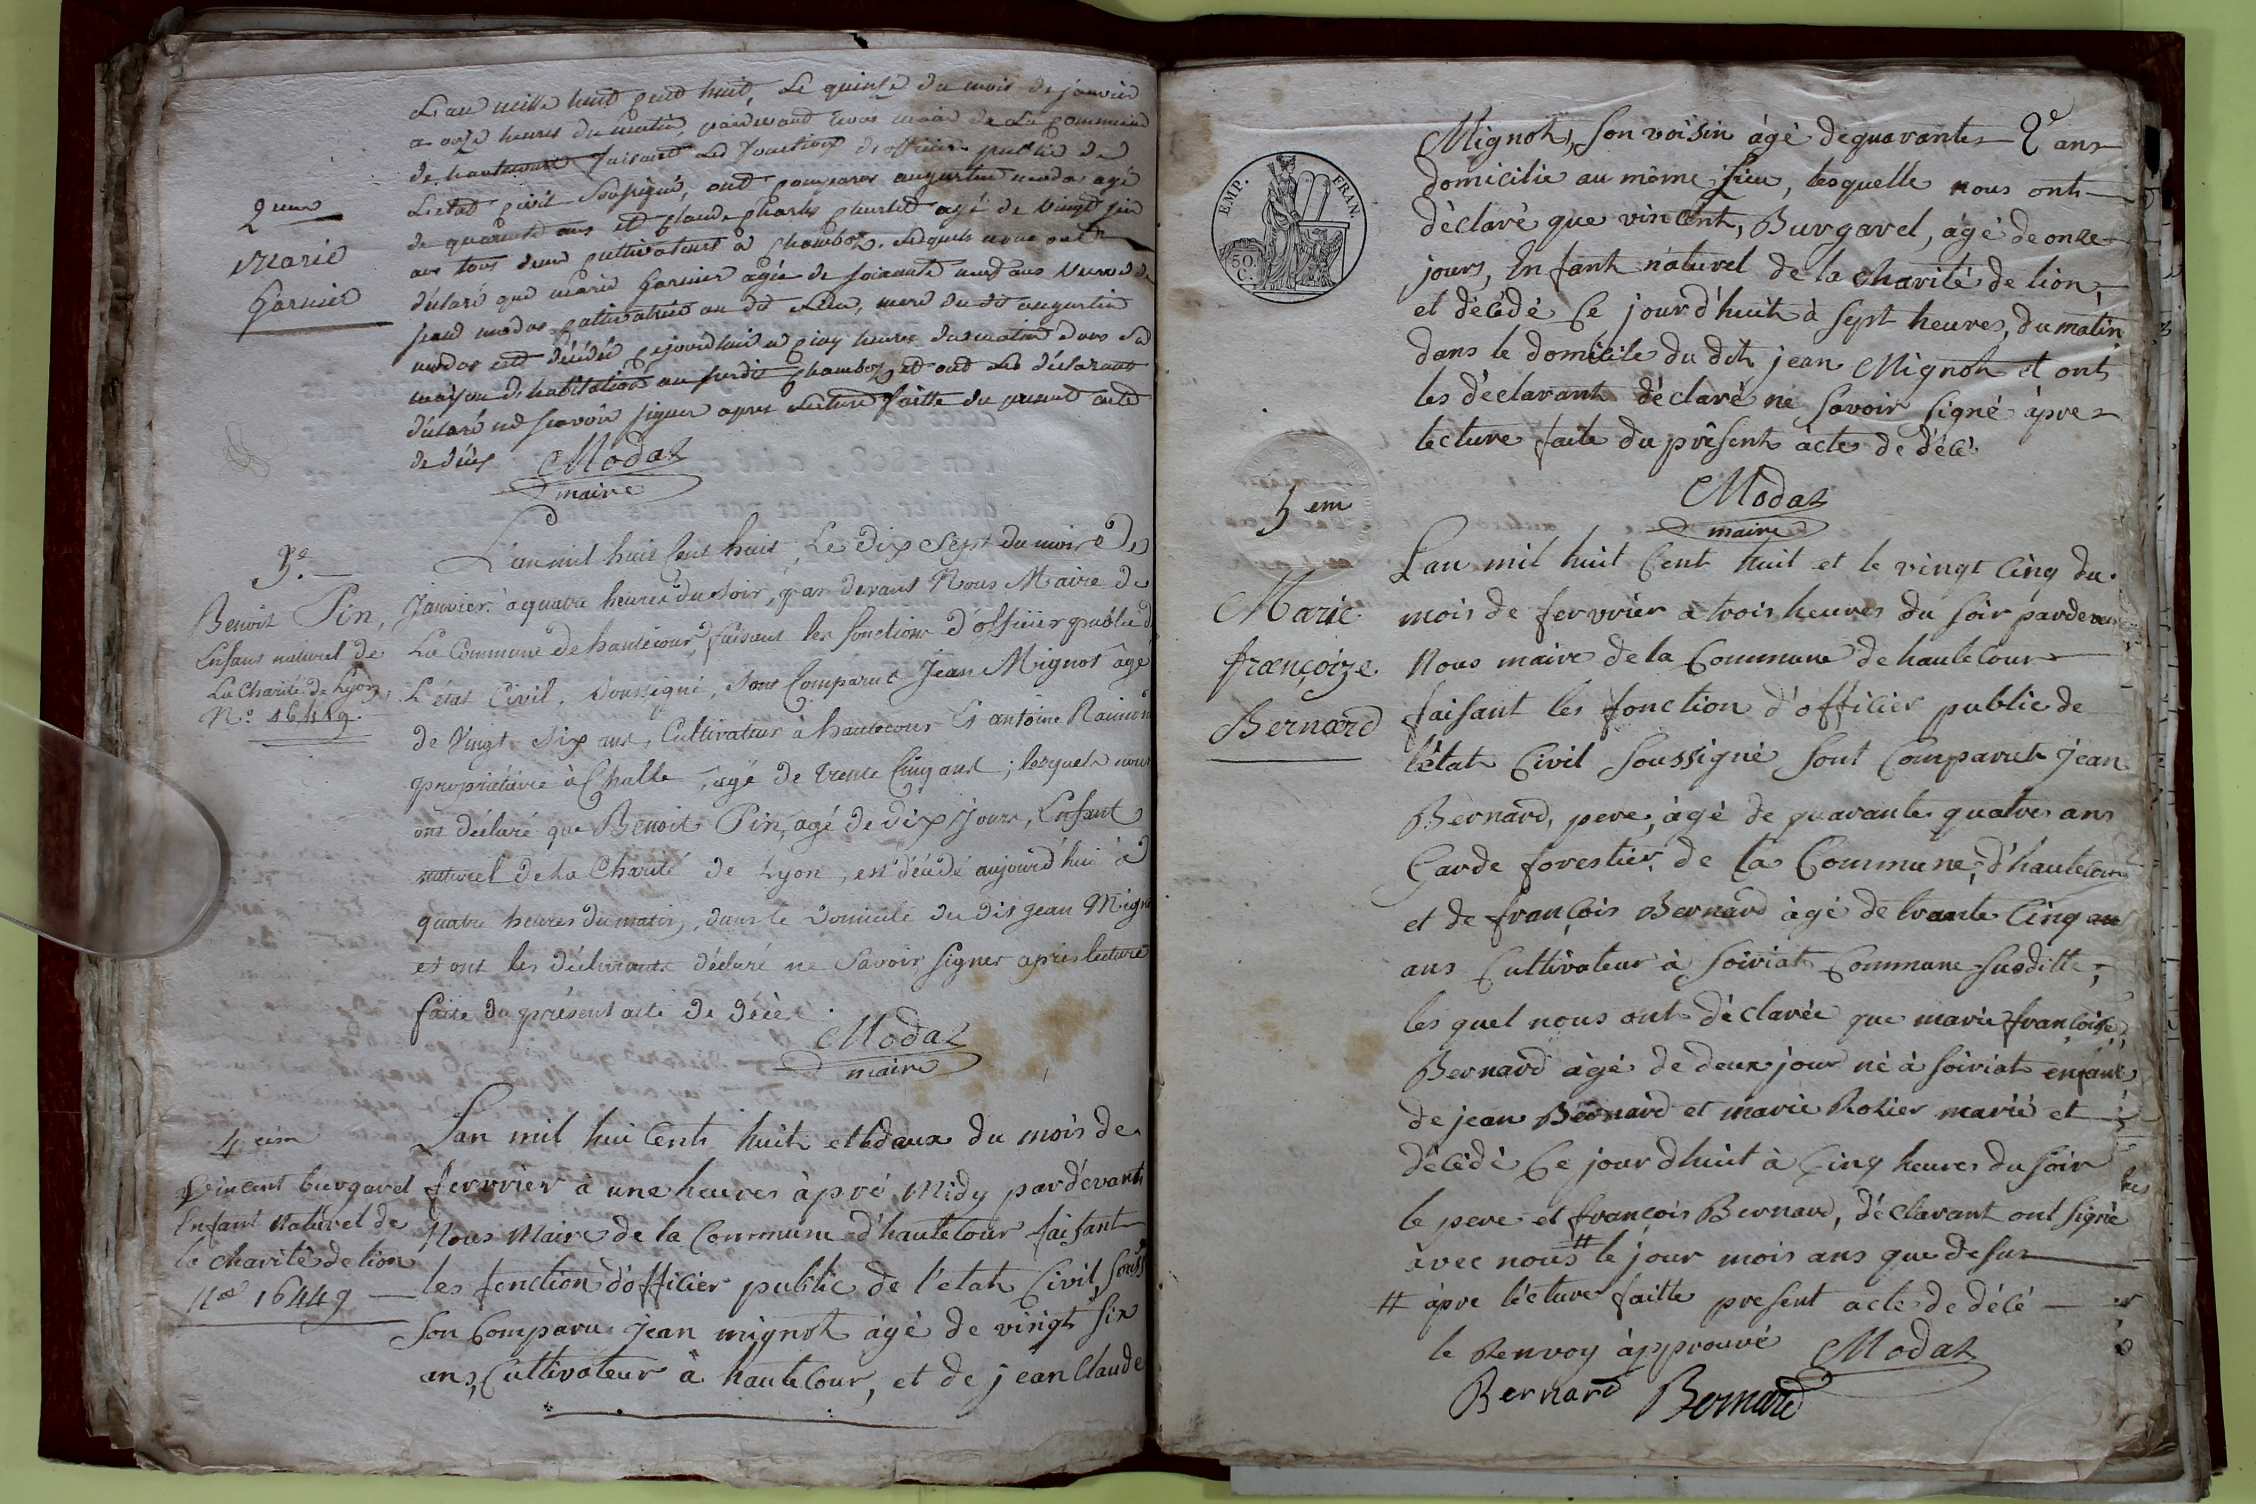 L'an mille huit cent huit, Le quinze du mois de janvier
a onze heures du matin, pardevant nous maire de La commune
de hautecour faisant Les fonctions d'officier public de
L'etat civil Soussigné, ont comparus augustin modas agé
de quarente ans et Claude Charles agé de vingt six
ans tous deux cultivateurs a Chambos, Lesquels nous ont
déclaré que marie Garnier agée de soixante neuf ans veuve de
modas cultivatrice au dit Lieu, mere du dit augustin
modas est décédée cejourdhui a cinq heures du matin dans sa
maison d'habitation au susdit Chambos, et ont Les déclarant
déclaré ne scavoir signer apres Lecture faitte du present acte
de décès
Modas
maire
2eme
Marie
Garnier
3e.
Benoit Pin,
Enfant naturel de
La Charité de Lyon,
No. 16419.
L'an mil huit Cent huit, Le dix Sept du mois de
Janvier à quatre heures du Soir, par devant Nous Maire de
La Commune de hautecour, faisant les fonctions d'officier public de
L'état Civil, Soussigné, Sont Comparut Jean Mignot âgé
de Vingt Six ans, Cultivateur à hautecour Et antoine
propriétaire à Challe, agé de trente Cinq ans; lesquels nous
ont déclaré que Benoit Pin, agé de dix Jours, Enfant
naturel de La Charité de Lyon, est décédé aujourd'hui à
quatre heures du matin, dans le Domicile du dit Jean Mign
et ont les déclarants déclaré ne Savoir Signer après lecture
faite du présent acte de décès.
Modas
maire
4 eim
Vincent burgarel
Enfant naturel de
la charité de lion
No 16449
Lan mil hui Cent huit et le deux du mois de
fervrier à une heures àpré Midy pardévant
Nous Maire de la Commune d'hautecour faisant
les fonction d'officier public de l'état Civil Souss
Son Comparu Jean mignot àgé de vingt six
ans, Cultivateur à hautecour, et de jean Claude
EMP. FRAN.
50 C.
Mignot, Son voisin àgé de quarante 2e ans
domicilié au même lieu, lesquelle nous ont
déclaré que vincent, Burgarel, àgé de onze
jours, Enfant naturel de la charité de lion,
et décédé Ce jour d'huit à sept heures, du matin
dans le domicile du dit jean Mignot et ont
les déclarant déclaré ne Savoir Signé àpre
lecture faite du présent àcte de décé
Modas
maire
5 em
Marie
françoize
Bernard
Lan mil huit Cent huit et le vingt Cinq du
mois de fervrier à trois heures du soir pardevan
Nous maire de la Commune de hautecour
faisant les fonction d'officier public de
l'état Civil Soussigné Sont Comparut Jean
Bernard, pere, àgé de quarante quatre ans
Garde forestier, de la Commune, d'hautecour
et de françois Bernard àgé de trante Cinq
ans Cultivateur à Soiriat Commune Susditte,
les quel nous ont déclarée que marie françoise,
Bernard àgé de deux jour né à Soiriat enfant
de jean Bernard et marie Rozier marié et
décédé Ce jour dhuit à Cinq heures du soir
le pere et françois Bernard, déclarant ont Signé
avec nous # le jour mois ans que desus
# àpre lécture faitte present acte de décé
le Renvoy àpprouvé Modas
Bernard Bernard